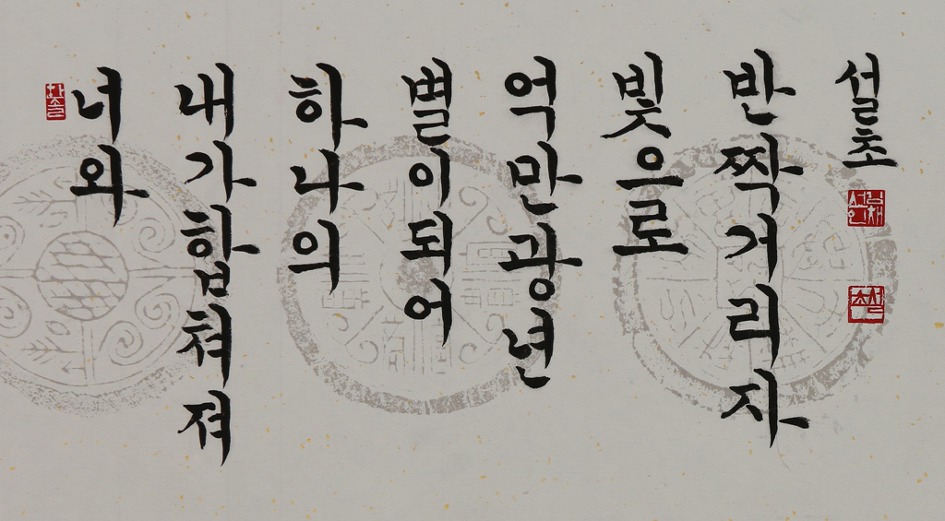 너와
내가합쳐져
하나의
별이되어
억만광년
빛으로
반짝거리자
설초
설초